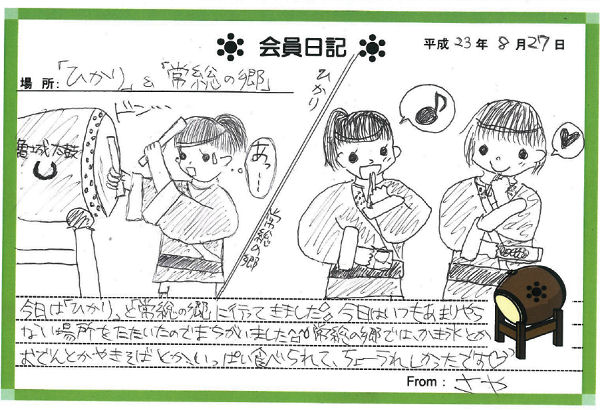 会員日記
平成23年8月27日
場所:「ひかり」&「常総の郷」
ひかり
ドン…
亀城太鼓
あ〜
常総の郷
今日は「ひかり」と「常総の郷」に行ってきました 今日はいつもあまりやら
ない場所をたたいたのでまちがいました 常総の郷では、かき氷とか
おでんとかやきそばとか、いっぱい食べられて、ちょーうれしかったです♡
From: さや